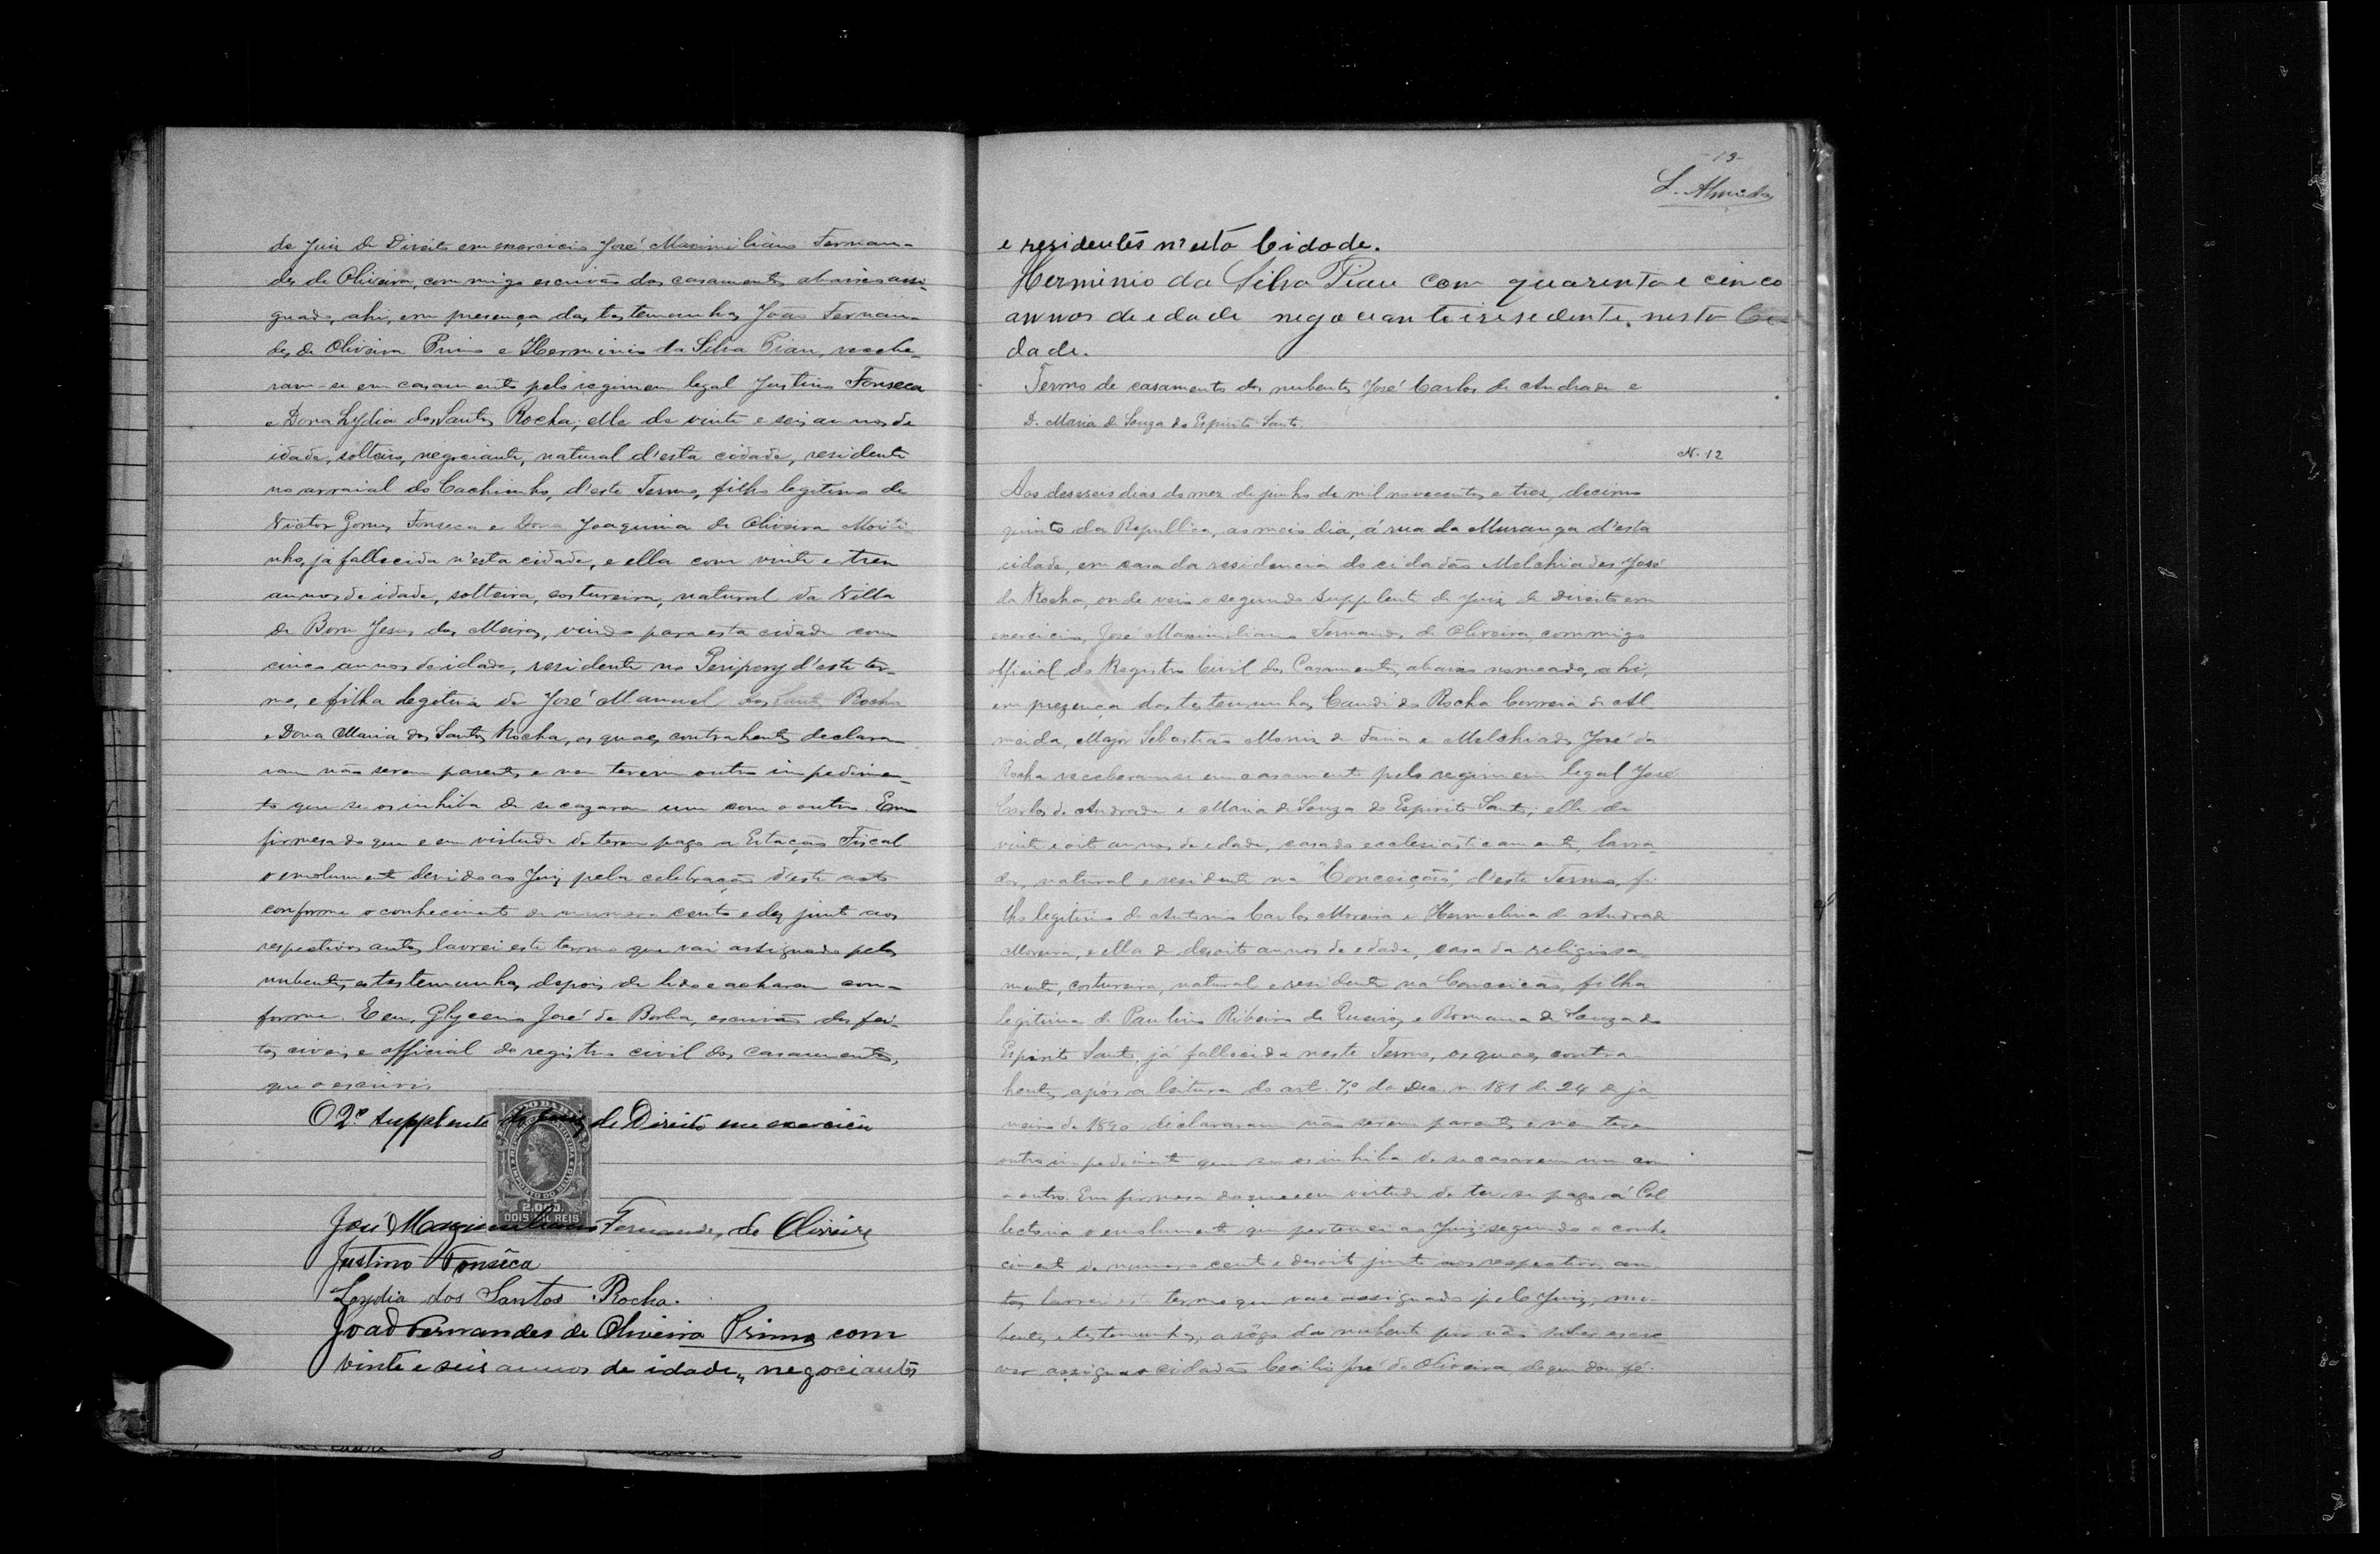 de Juiz de Direito em exercicio José Maximiliano Fernan-
des de Oliveira, commigo escrivão dos casamentos abaixo assi-
gnado, ahi, em presença das testemunhas João Fernan-
des de Oliveira Primo e Herminio da Silva Piau, recebe-
ram-se em casamento pelo regimen legal Justino Fonseca
e Dona Lydia dos Santos Rocha; elle de vinte e seis annos de
idade, solteiro, negociante, natural d'esta cidade, residente
no arraial do Cachimbo, d'este Termo, filho legitimo de
Victor Gomes Fonseca e Dona Joaquina de Oliveira Moiti-
nho, já fallecida n'esta cidade, e ella com vinte e tres
annos de idade, solteira, costureira, natural da Villa
de Bom Jesus dos Meiras, vindo para esta cidade com
cinco annos de idade, residente no Peripery d'este ter-
mo, e filha legitima de José Manuel dos Santos Rocha
e Dona Maria dos Santos Rocha, os quaes contrahentes declara-
ram não serem parentes e nem terem outro impedimen-
to que se os inhiba de se cazarem um com o outro. Em
firmesa do que e em virtude de terem pago a Estação Fiscal
o emolumento devido ao Juiz pela celebração d'este acto
conforme o conhecimento de numero cento e dez junto aos
respectivos autos, lavrei este termo que vai assignado pelos
nubentes, e testemunhas, depois de lido e acharem con-
forme. E eu, Glycerio José de Borba, escrivão dos fei-
tos civeis e official do registro civil dos casamentos,
que o escrivi.
O 2º supplente do Juiz de Direito em exercicio
2.000
DOIS MIL REIS
José Maximiliano Fernandes de Oliveira
Justino Fonsêca
Lydia dos Santos Rocha.
João Fernandes de Oliveira Primo com
vinte e seis annos de idade, negociantes
-13-
L. Almeida
e residentes n'esta Cidade.
Herminio da Silva Piau com quarenta e cinco
annos de edade negociante e resedente nesta Ci-
dade.
Termo de casamento dos nubentes José Carlos de Andrade e
D. Maria de Souza do Espirito Santo.
N. 12
Aos deseseis dias do mez de junho de mil novecentos e tres, decimo
quinto da Republica, ao meio dia, á rua da Muranga d'esta
cidade, em casa da residencia do cidadão Melchiades José
da Rocha, onde veio o segundo supplente de Juiz de Direito em
exercicio, José Maximiliano Fernandes de Oliveira, commigo
official do Registro Civil dos Casamentos, abaixo nomeado, ahi,
em prezença das testemunhas Candido Rocha Correia de Al-
meida, Major Sebastião Moniz de Faria e Melchiades José da
Rocha receberam-se em casamento pelo regimem legal José
Carlos de Andrade e Maria de Souza do Espirito Santo; elle de
vinte e oito annos de edade, casado ecclesiasticamente, lavra-
dor, natural e residente na "Conceição", d'este Termo, fi-
lho legitimo de Antonio Carlos Moreira e Hermelina de Andrade
Moreira, e ella de desoito annos de edade, casada religiosa-
mente, costureira, natural e residente na Conceicão, filha
legitima de Paulino Ribeiro de Queiroz e Romana de Souza do
Espirito Santo, já fallecida neste Termo, os quaes contra-
hentes, após a leitura do art. 7º do Dec. n. 181 de 24 de ja-
neiro de 1890 declararam não serem parentes e nem terem
outro impedimento que se os inhiba de se casarem um com
o outro. Em firmesa do que e em virtude de ter-se pago á Col-
lectoria o emolumento que pertence ao Juiz, segundo o conhe-
cimento de numero cento e desoito junto aos respectivos au-
tos, lavrei este termo que vae assignado pelo Juiz, nu-
bentes, e testemunhas, a rôgo da nubente por não saber escre-
ver assigna o cidadão Cecilio José de Oliveira, do que dou fé.